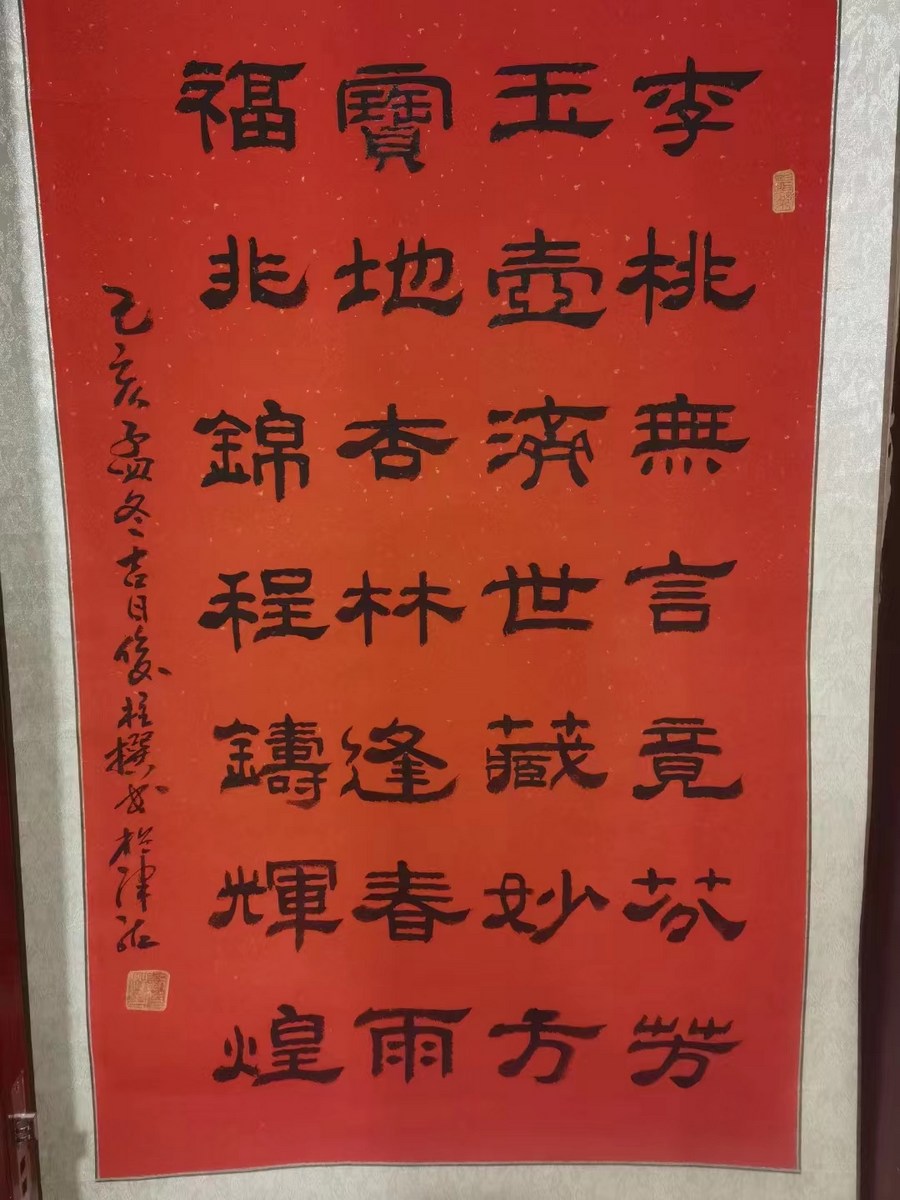 李桃無言竟芬芳
玉壺濟世藏妙方
寶地杏林逢春雨
福兆錦程鑄輝煌
己亥孟冬吉日俊柱撰书於津沽